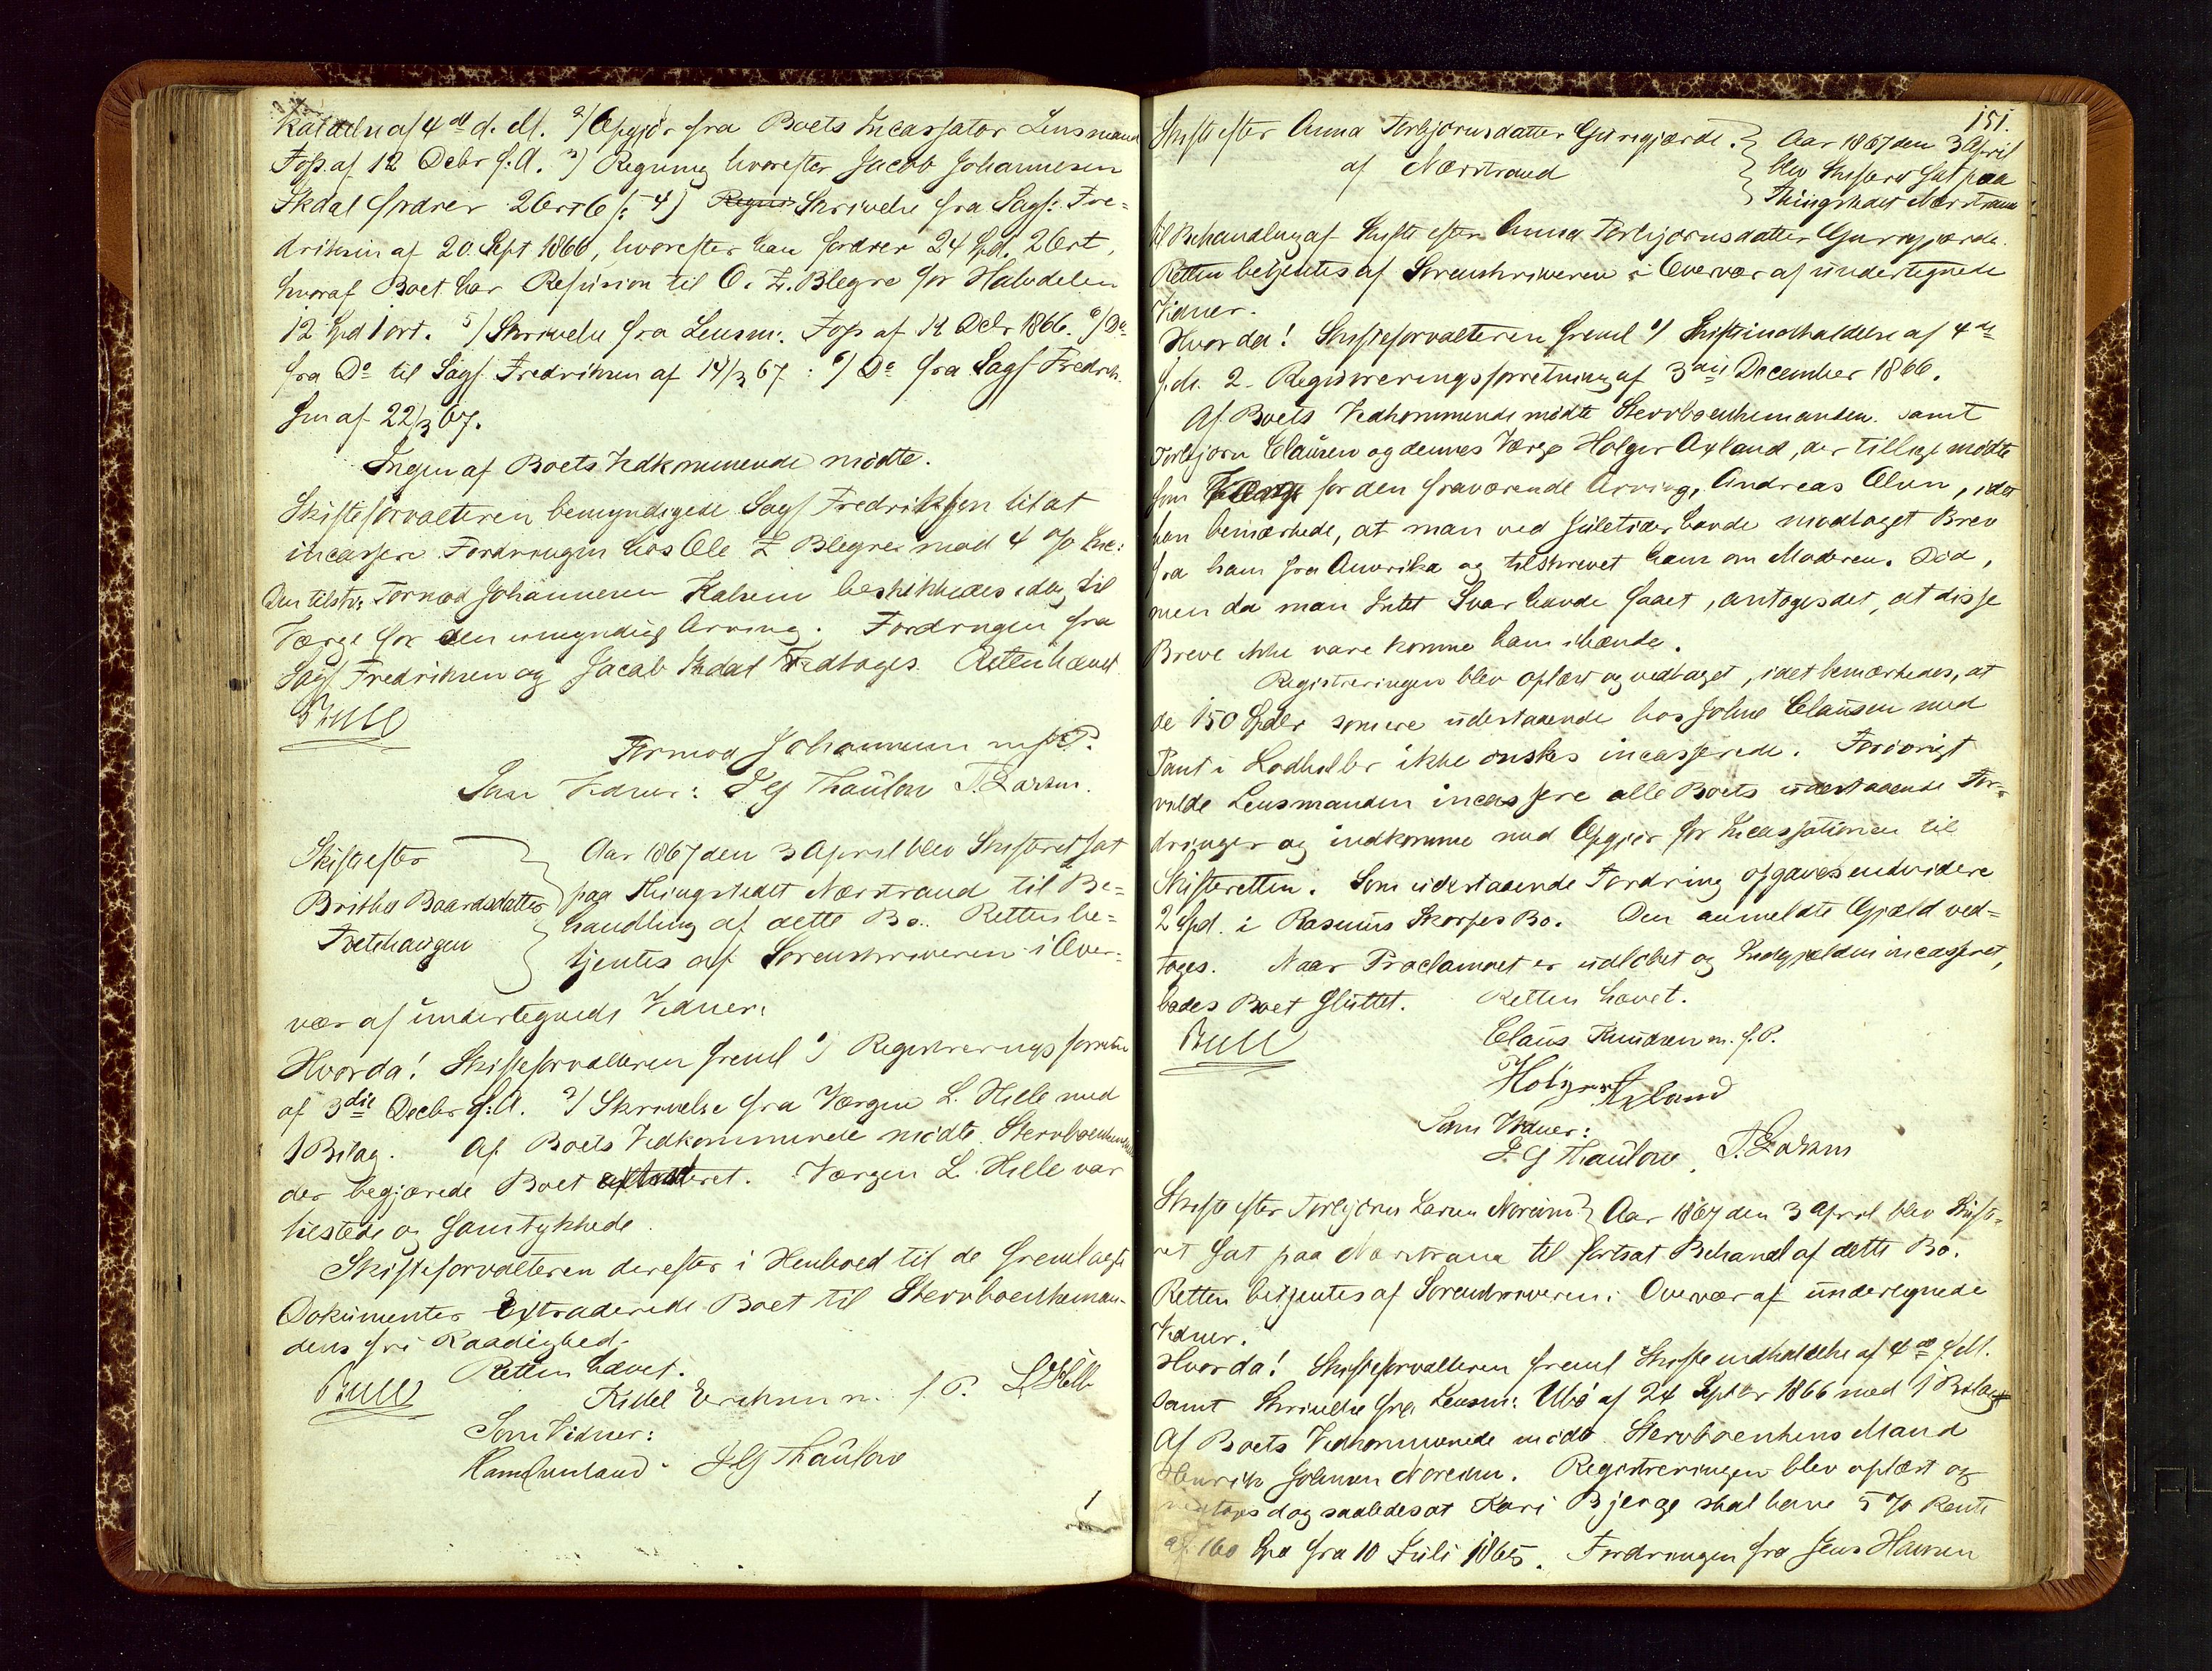 kaldelse af 4de d. M. 2) Opgjør fra Boets Incassator Lensmand
Foss af 12 Decbr f. A. 3) Regning hvorefter Jacob Johannesen
Ikdal fordrer 2 Ort 6 s. 4) Skrivelse fra Sagf. Fre-
driksen af 20 Sept 1866, hvorefter han fordrer 24 Spd. 2 Ort,
hvoraf Boet har Refusion til O. Z. Blegre for Halvdelen
12 Spd 1 ort. 5) Skrivelse fra Lensm: Foss af 12 Decbr 1866. 6) Do
fra Do til Sagf Fredriksen af 14/3 67: 6) Do fra Sagf Fredrik-
sen af 22/3 67.
Ingen af Boets Vedkommende mødte.
Skifteforvalteren bemyndigede Sagf Fredriksen til at
incassere Fordringen hos Ole Z Blegre mod 4 % Inc:
Den tilstr: Tormod Johannesen Kalsem beskikkedes idag til
Værge for den umyndige Arving. Fordringen fra
Sagf Fredriksen og Jacob Ikdal Vedtoges. Retten hævet
Bull
Tormod Johannesen m. f. P.
Som Vidner: J G Thaulow T. Larsen.
Skifte efter
Britha Baardsdatter
Tveithaugen
Aar 1867 den 3 April blev Skifteret sat
paa Thingstedet Nærstrand til Be-
handling af dette Bo. Retten be-
tjentes af Sorenskriveren i Over-
vær af undertegnede Vidner:
Hvorda! Skifteforvalteren freml 1) Registreringsforretn
af 3die Decbr f: A. 2) Skrivelse fra Værgen L. Helle med
1 Bilag. Af Boets Vedkommende mødte Stervboenkemanden
der begjærede Boet extraderet. Værgen L. Helle var
tilstede og samtykkede.
Skifteforvalteren derefter i Henhold til de fremlagte
Dokumenter Extraderede Boet til Stervboenkeman-
dens fri Raadighed.
Retten hævet.
Bull
Kittel Erichsen m. f. P. L. Helle
Som Vidner:
J G Thaulow
151.
Skifte efter Anna Torbjørnsdatter Gursgjærde.
af Nærstrand
Aar 1867 den 3 April
blev Skifteret sat paa
Thingstedet Nærstrand
til Behandling af Skifte efter Anna Torbjørnsdatter Gursgjærde.
Retten betjentes af Sorenskriveren i Overvær af undertegnede
Vidner.
Hvorda! Skifteforvalteren freml 1) Skifteindkaldelse af 4de
f. M. 2. Registreringsforretning af 3die December 1866.
Af Boets Vedkommende mødte Stervboenkemanden samt
Torbjørn Clausen og dennes Værge Holger Axland, der tillige mødte
som for den fraværende Arving, Andreas Olsen, idet
han bemærkede, at man ved Juletider havde modtaget Brev
fra ham fra Amerika og tilskrevet ham om Moderen. Død,
men da man Intet Svar havde faaet, antoges det, at disse
Breve ikke vare komne ham ihænde.
Registreringen blev oplæst og vedtaget, idet bemærkedes, at
de 150 Spdlr som ere udestaaende hos Johne Clausen med
Pant i ikke ønskes incasserede. Forøvrigt
vilde Lensmanden incassere alle Boets udestaaende For-
dringer og indkomme med Opgjør for Incassationen til
Skifteretten. Som udestaaende Fordring opgaves endvidere
2 Spd. i Rasmus Skorpes Bo. Den anmeldte Gjæld ved-
toges. Naar Proclamaet er udløbet og Indgjælden incasseret,
bades Boet sluttet. Retten hævet.
Bull
Claus Knudsen m. f. P.
Holger Axland
Som Vidner:
J G Thaulow, T. Larsen
Skifte efter Torbjørn Larsen Noreim
Aar 1867 den 3 April blev Skifte-
ret sat paa Nærstrand til fortsat Behandl af dette Bo.
Retten betjentes af Sorenskriveren i Overvær af undertegnede
Vidner.
Hvorda! Skifteforvalteren freml Skifteindkaldelse af 4de f. M.
samt Skrivelse fra Lensm: Ubø af 24 Septbr 1866 med 1 Bilag
Af Boets Vedkommende mødte Stervboenkens Mand
Henrik Johnsen Noreim. Registreringen blev oplæst og
vedtoges dog saaledes at Kari Bjerge skal have 5 % Rente
af 160 Spd fra 10 Juli 1865. Fordringen fra Jens Hansen